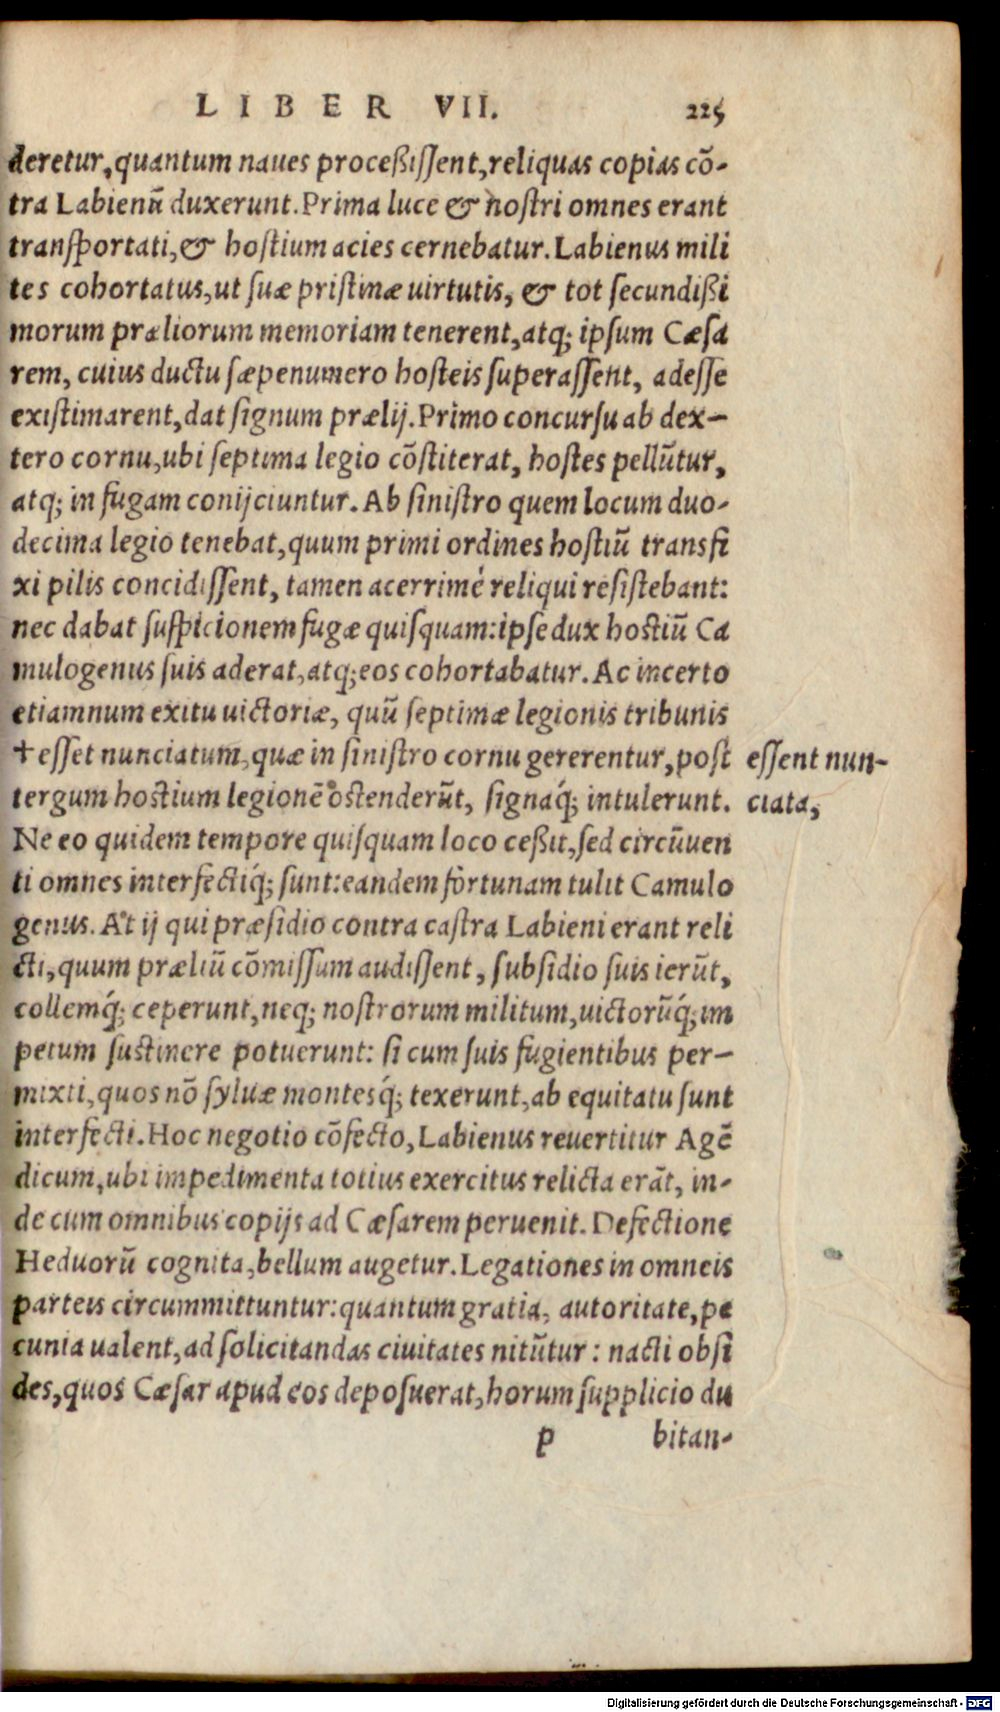 LIBER VII. 225
deretur, quantum naues proceßiſſent, reliquas copias cõ-
tra Labienũ duxerunt. Prima luce & noſtri omnes erant
tranſportati, & hoſtium acies cernebatur. Labienus mili
tes cohortatus, ut ſuæ priſtinæ uirtutis, & tot ſecundißi
morum præliorum memoriam tenerent, atq; ipſum Cæſa
rem, cuius ductu ſæpenumero hoſteis ſuperaſſent, adeſſe
exiſtimarent, dat ſignum prælij. Primo concurſu ab dex-
tero cornu, ubi ſeptima legio cõſtiterat, hoſtes pellũtur,
atq; in fugam conijciuntur. Ab ſiniſtro quem locum duo-
decima legio tenebat, quum primi ordines hoſtiũ transfi
xi pilis concidiſſent, tamen acerrimé reliqui reſiſtebant:
nec dabat ſuſpicionem fugæ quiſquam: ipſe dux hoſtiũ Ca
mulogenus ſuis aderat, atq; eos cohortabatur. Ac incerto
etiamnum exitu uictoriæ, quũ ſeptimæ legionis tribunis
+ eſſet nunciatum, quæ in ſiniſtro cornu gererentur, poſt
tergum hoſtium legionẽ oſtenderũt, ſignaq́; intulerunt.
Ne eo quidem tempore quiſquam loco ceßit, ſed circũuen
ti omnes interfectiq́; ſunt: eandem fortunam tulit Camulo
genus. At ij qui præſidio contra caſtra Labieni erant reli
cti, quum præliũ cõmiſſum audiſſent, ſubſidio ſuis ierũt,
collemq́; ceperunt, neq; noſtrorum militum, uictorũq́; im
petum ſuſtinere potuerunt: ſi cum ſuis fugientibus per-
mixti, quos nõ ſyluæ montesq́; texerunt, ab equitatu ſunt
interfecti. Hoc negotio cõfecto, Labienus reuertitur Agẽ
dicum, ubi impedimenta totius exercitus relicta erãt, in-
de cum omnibus copijs ad Cæſarem peruenit. Defectione
Heduorũ cognita, bellum augetur. Legationes in omneis
parteis circummittuntur: quantum gratia, autoritate, pe
cunia ualent, ad ſolicitandas ciuitates nitũtur: nacti obſi
des, quos Cæſar apud eos depoſuerat, horum ſupplicio du
p bitan-
eſſent nun-
ciata,
Digitalisierung gefördert durch die Deutsche Forschungsgemeinschaft - DFG